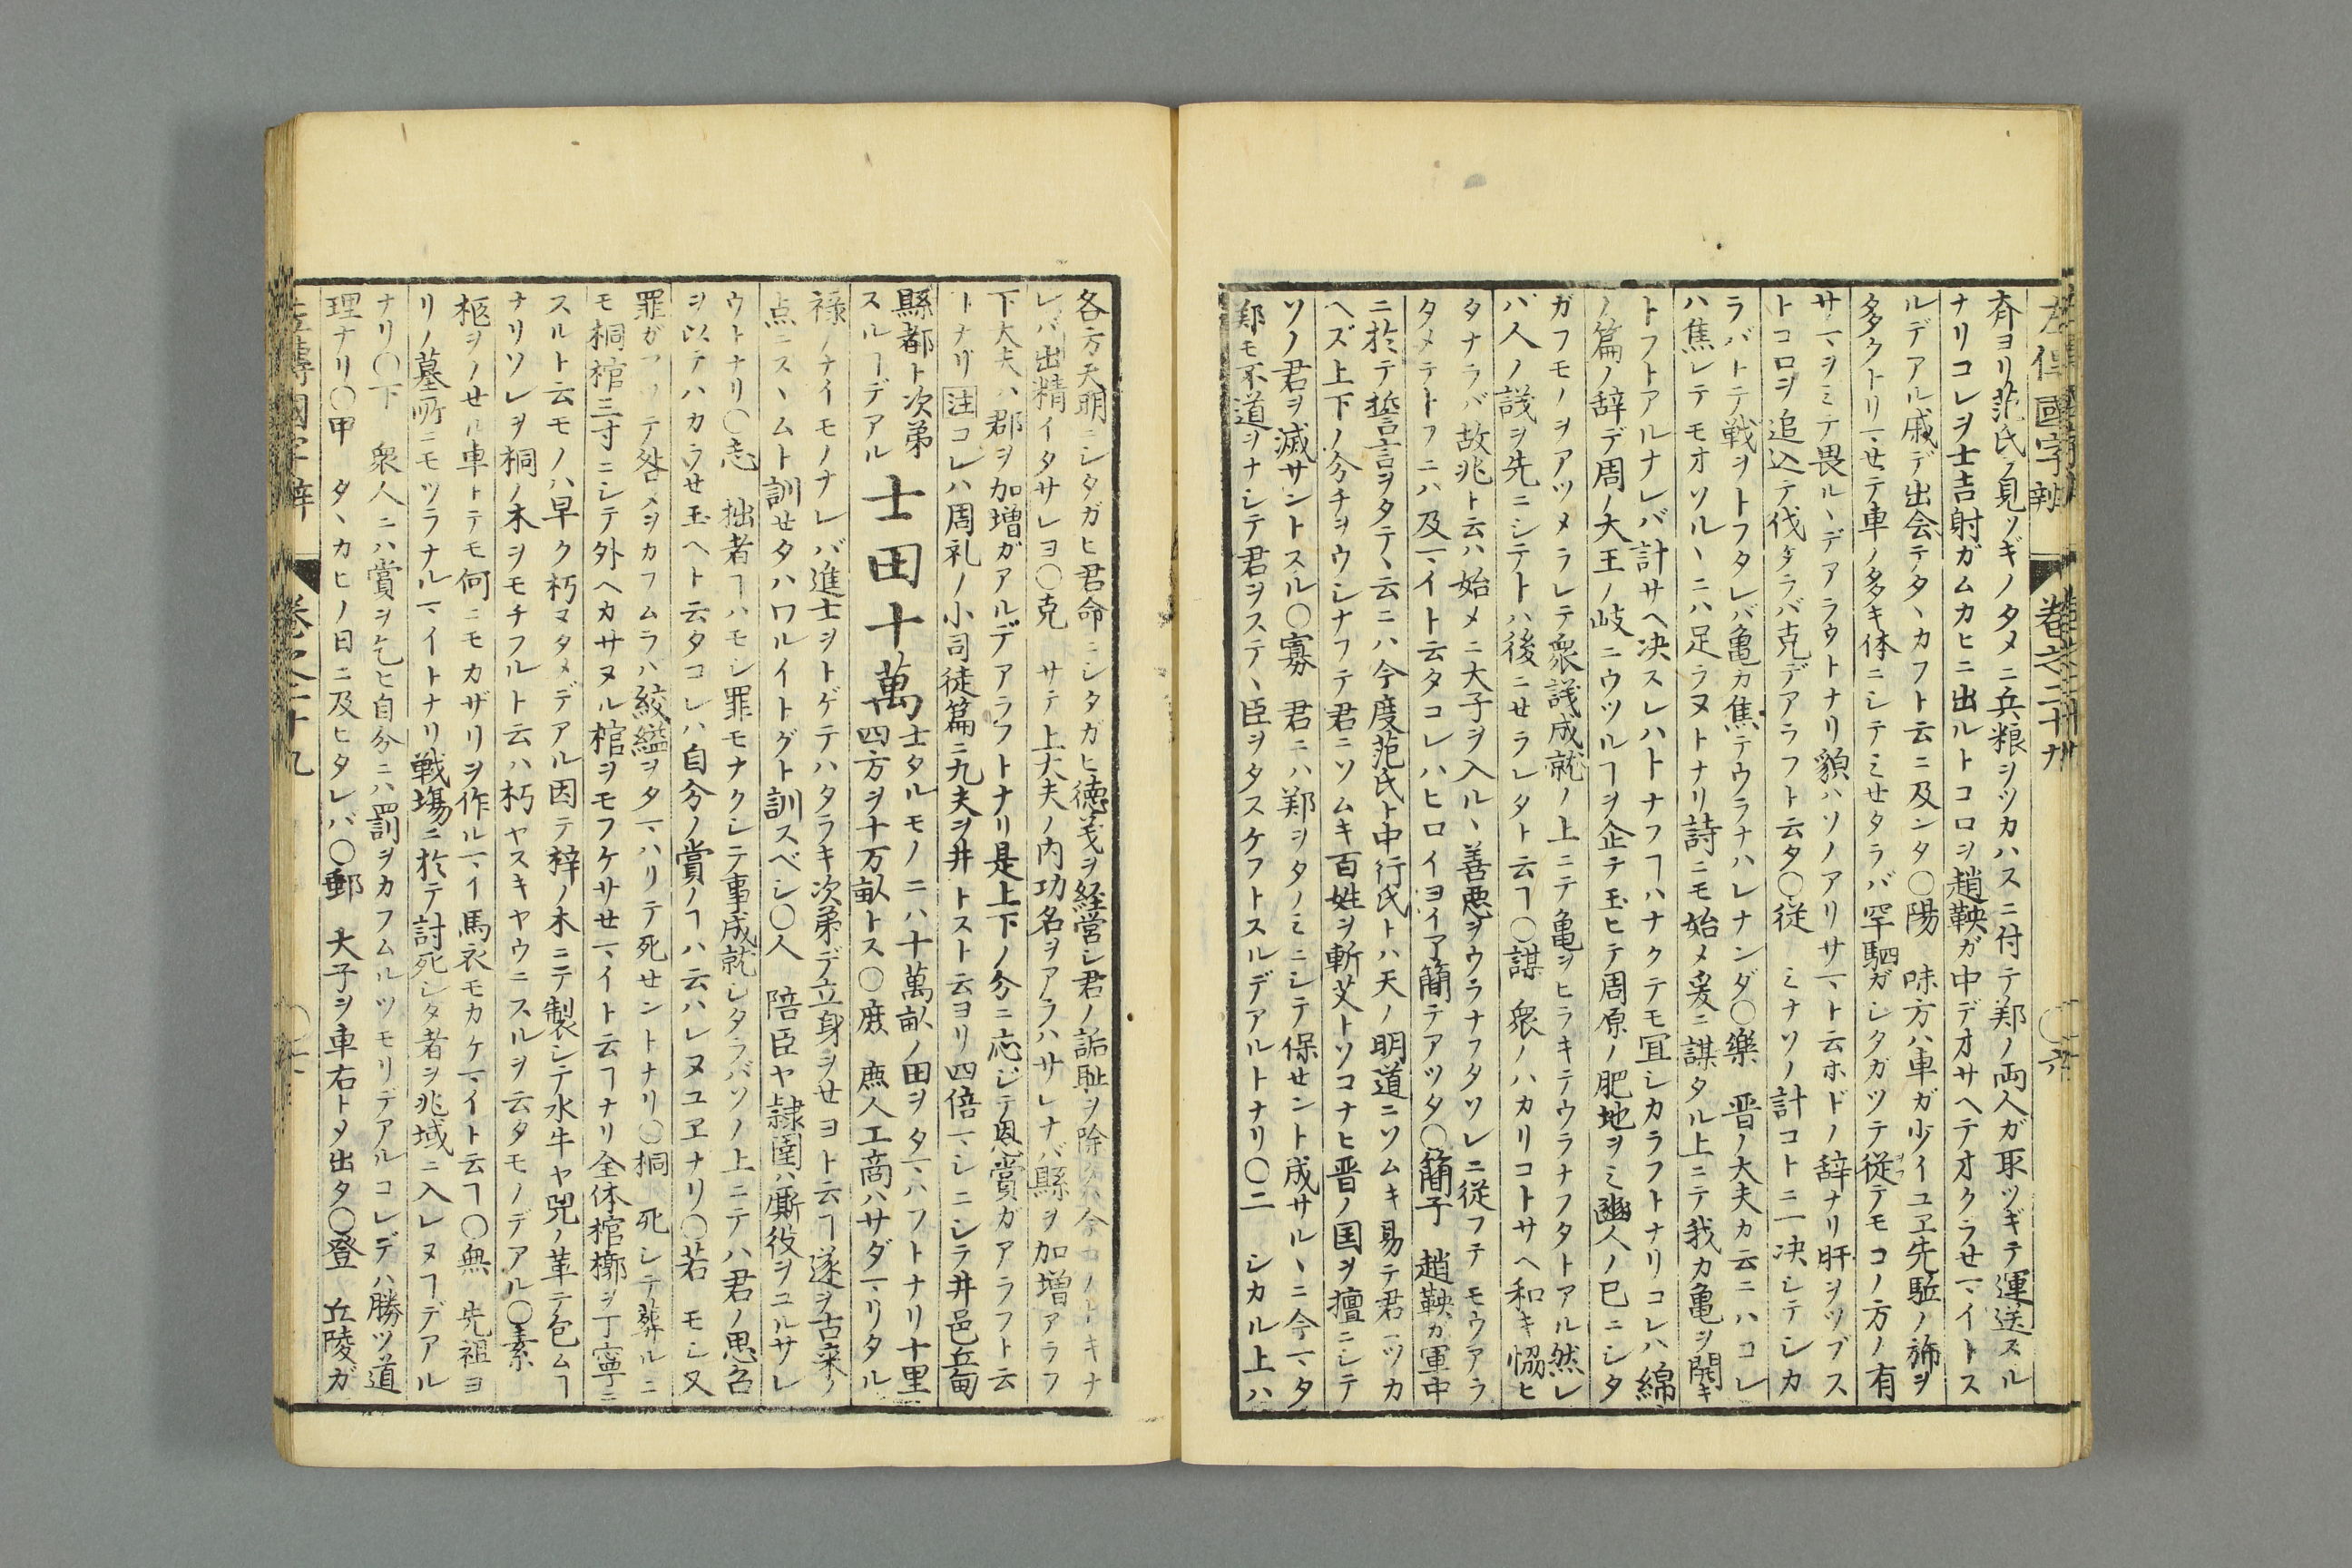 斉ヨリ范氏ヲ見ツギノタメニ兵粮ヲツカハスニ付テ郑ノ両人ガ取ツギテ運送スル
ナリコレヲ士吉射ガムカヒニ出ルトコロヲ趙鞅ガ中デオサヘテオクラせヿイトス
ルデアル戚デ出会テタヽカフト云ニ及ンタ〇陽　味方ハ車ガ少イユヱ先駈ノ旆ヲ
多クトリヿせテ車ノ多キ体ニシテミせタラバ罕駟ガシタガツテ従テモコノ方ノ有
サヿヲミテ畏ルヽデアラウトナリ貌ハソノアリサヿト云ホドノ辞ナリ肝ヲツブス
トコロヲ追込テ伐タラバ克デアラフト云タ〇従　ミナソノ計コトニ一决シテシカ
ラバトテ戦ヲトフタレバ亀カ焦テウラナハレナンダ〇樂　晋ノ大夫カ云ニハコレ
ハ焦レテモオソルヽニハ足ラヌトナリ詩ニモ始メ爰ニ謀タル上ニテ我カ亀ヲ開キ
トフトアルナレバ計サヘ决スレハトナフヿハナクテモ冝シカラフトナリコレハ綿
ノ篇ノ辞デ周ノ大王ノ岐ニウツルヿヲ企テ玉ヒテ周原ノ肥地ヲミ豳人ノ巳ニシタ
ガフモノヲアツメラレテ衆議成就ノ上ニテ亀ヲヒラキテウラナフタトアル然レ
バ人ノ議ヲ先ニシテトハ後ニせラレタト云ヿ〇謀　衆ノハカリコトサヘ和キ恊ヒ
タナラバ故兆ト云ハ始メニ大子ヲ入ルヽ善悪ヲウラナフタソレニ従フテモウアラ
タメテトフニハ及ヿイト云タコレハヒロイヨイ了簡テアツタ〇簡子　趙鞅カ軍中
ニ於テ誓言ヲタテヽ云ニハ今度范氏ト中行氏トハ天ノ明道ニソムキ易テ君一ツカ
ヘズ上下ノ分チヲウシナフテ君ニソムキ百姓ヲ斬艾トソコナヒ晋ノ国ヲ擅ニシテ
ソノ君ヲ滅サントスル〇寡　君ニハ郑ヲタノミニシテ保せント成サルヽニ今ヿタ
郑モ不道ヲナシテ君ヲステヽ臣ヲタスケフトスルデアルトナリ〇二　シカル上ハ
各方天明ニシタガヒ君命ニシタガヒ徳義ヲ経営シ君ノ詬耻ヲ除クハ今コノトキナ
レバ出精イタサレヨ〇克　サテ上大夫ノ内功名ヲアラハサレナバ縣ヲ加増アラフ
下大夫ハ郡ヲ加増ガアルデアラフトナリ是上下ノ分ニ応ジテ恩賞ガアラフト云
トナリ注コレハ周礼ノ小司徒篇ニ九夫ヲ井トスト云ヨリ四倍ヿシニシテ井邑丘甸
縣都ト次弟スルヿデアル　士田十萬　士タルモノニハ十萬畝ノ田ヲタヿハフトナリ十里四方ヲ十万畝トス〇庻　庻人工商ハサダヿリタル
禄ノナイモノナレバ進士ヲトゲテハタラキ次弟デ立身ヲせヨト云ヿ遂ヲ古来ノ
点ニスヽムト訓せタハワルイトグト訓スベシ〇人　陪臣ヤ隷圉ハ厮役ヲユルサレ
ウトナリ〇志　拙者ヿハモシ罪モナクシテ事成就シタラバソノ上ニテハ君ノ思召
ヲ以テハカラせ玉ヘト云タコレハ自分ノ賞ノヿハ云ハレヌユヱナリ〇若　モシ又
罪ガアツテ咎メヲカフムラハ絞縊ヲタヿハリテ死せントナリ〇桐　死シテ葬ルニ
モ桐棺三寸ニシテ外ヘカサヌル棺ヲモフケサせヿイト云ヿナリ全体棺槨ヲ丁寧ニ
スルト云モノハ早ク朽ヌタメデアル因テ梓ノ木ニテ製シテ水牛ヤ兕ノ革テ包ムヿ
ナリソレヲ桐ノ木ヲモチフルト云ハ朽ヤスキヤウニスルヲ云タモノデアル〇素
柩ヲノせル車トテモ何ニモカザリヲ作ルヿイ馬衣モカケヿイト云ヿ〇無　先祖ヨ
リノ墓所ニモツラナルヿイトナリ戦塲ニ於テ討死シタ者ヲ兆域ニ入レヌヿデアル
ナリ〇下　衆人ニハ賞ヲ乞ヒ自分ニハ罰ヲカフムルツモリデアルコレデハ勝ツ道
理ナリ〇甲　タヽカヒノ日ニ及ヒタレバ〇郵　大子ヲ車右トメ出タ〇登　丘陵ガ
左傳國字辯　卷之二十九